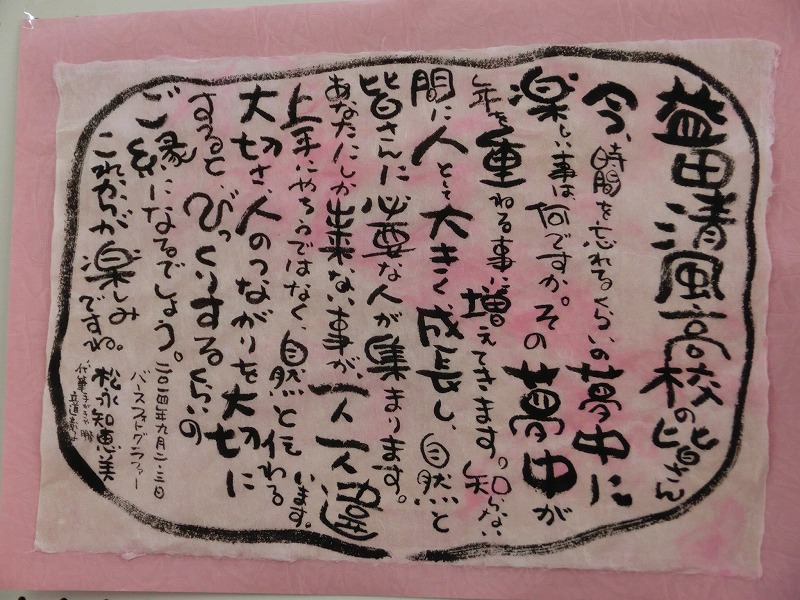 益田清風高校の皆さん
今、時間を忘れるくらいの夢中に
楽しい事は、何ですか。その夢中が
年を重ねる事に増えてきます。知らない
間に人として大きく、成長し、自然と
皆さんに必要な人が集まります。
あなたにしか出来ない事が、一人一人違います。
上手にやろうではなく、自然と伝わる
大切さ、人のつながりを大切に
すると、びっくりするくらいの
ご縁になるでしょう。
これからが楽しみ
ですね。
二〇一四年九月二・三日
バースフォトグラファー
松永知恵美
代筆